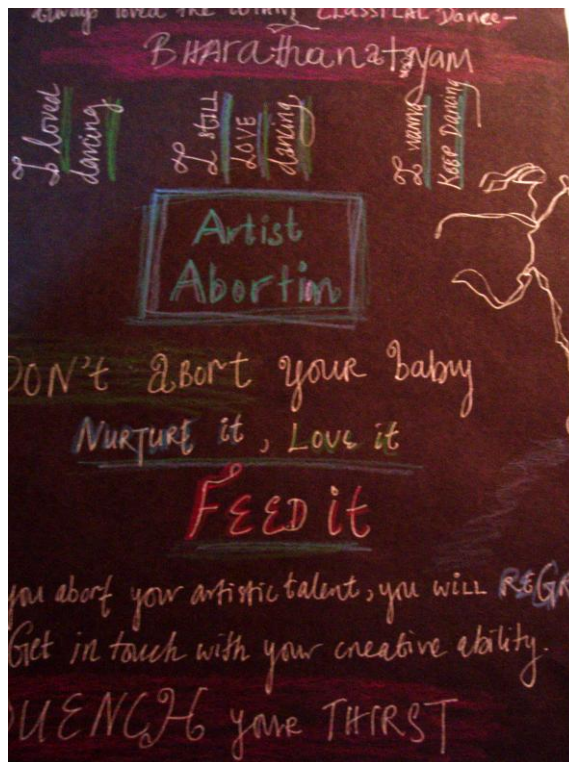 always loved the Indian CLASSICAL Dance-
BHARathanatyam
I loved
dancing
I STILL
LOVE
dancing
I wanna
KEEP Dancing
Artist
Abortin
DON't ABORT your baby
NURTURE it, LOVE it
FEED it
you abort your artistic talent, you will REGR
Get in touch with your creative ability.
QUENCH your THIRST